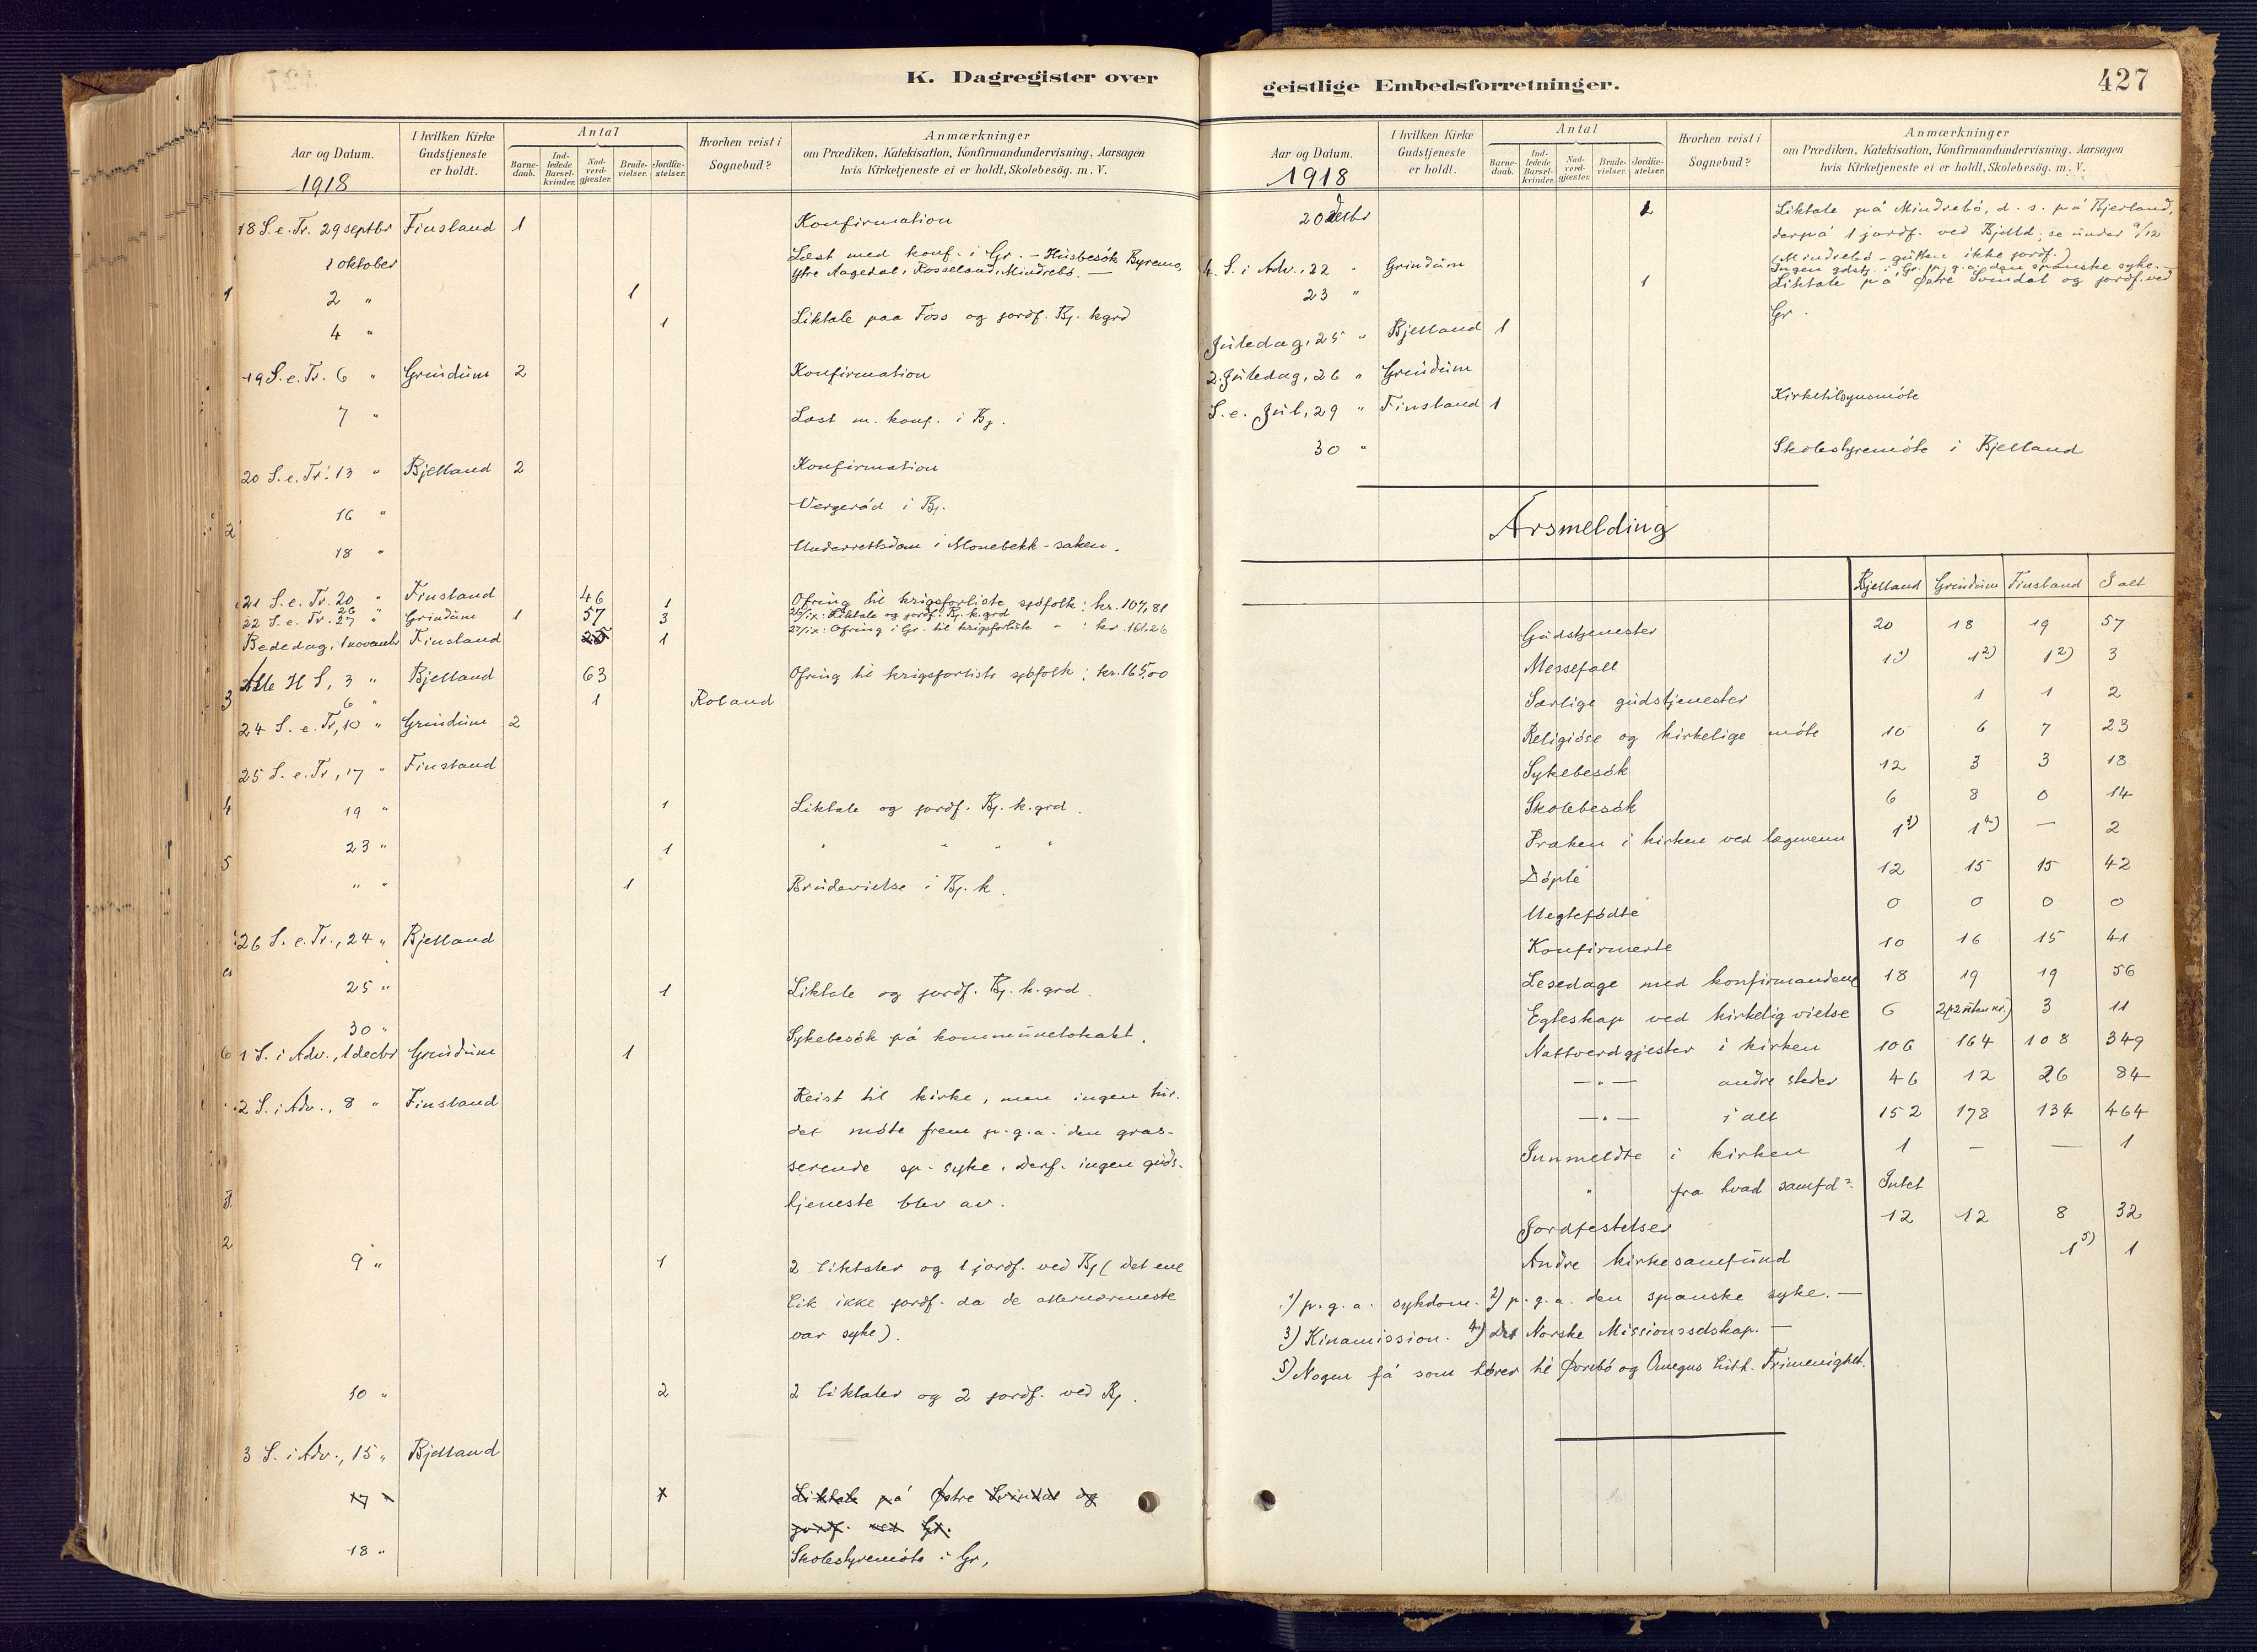 K. Dagregister over
Aar og Datum.
1918
I hvilken Kirke Gudstjeneste er holdt.
Antal
Barne-daab.
Ind-ledede Barsel-kvinder.
Nad-verd-gjæster.
Brude-vielser.
Jordfæ-stelser.
Hvorhen reist i Sognebud?
Anmærkninger
om Prædiken, Katekisation, Konfirmandundervisning, Aarsagen
hvis Kirketjeneste ei er holdt, Skolebesög. m. V.
18 S. e. Tr. 29 septbr Finsland 1 Konfirmation
1 oktober Læst med konf. i Gr. - Husbesök Byremo,
Ytre Aagedal, Rosseland, Mindrebö. —
2 " 1
4 " 1 Liktale paa Foss og jordf. Bj. kgrd
19 S. e. Tr. 6 " Grindum 2 Konfirmation
7 " Læst m. konf. i Bj.
20 S. e. Tr. 13 " Bjelland 2 Konfirmation
16 " Vergeråd i Bj.
18 " Underrettsdom i Monebekk-saken.
21 S. e. Tr. 20 " Finsland 46 1 Ofring til krigsforliste sjöfolk: kr. 107,81
22 S. e. Tr. 27 " Grindum 1 57 3 26/ix: Liktale og jordf. Bj. k.grd
27/ix: Ofring i Gr. til krigsforliste " : kr. 161,26
Bededag, 1 novembr Finsland 25 1
Alle H S, 3 " Bjelland 63 Ofring til krigsforliste sjöfolk: kr. 165,00
6 " 1 Roland
24 S. e. Tr, 10 " Grindum 2
25 S. e. Tr, 17 " Finsland
19 " 1 Liktale og jordf. Bj. k.grd.
23 " 1 " " " "
" " 1 Brudevielse i Bj. k.
26 S. e. Tr., 24 " Bjelland
25 " 1 Liktale og jordf. Bj. k.grd.
30 " Sykebesök på kommunelokalt.
1 S. i Adv., 1 decbr Grindum 1
2 S. i Adv., 8 " Finsland Reist til kirke, men ingen tur-
det möte frem p.g.a. den gras-
serende sp. syke. Derf. ingen guds-
tjeneste blev av.
9 " 1 2 liktaler og 1 jordf. ved Bj ( det ene
lik ikke jordf. da de allernærmeste
var syke).
10 " 2 2 liktaler og 2 jordf. ved Bj.
3 S. i Adv., 15 " Bjelland
17 " 1 Liktale på Östre Svindal og
jordf. ved Gr.
18 " Skolestyremöte i Gr,
geistlige Embedsforretninger.
427
Aar og Datum.
1918
I hvilken Kirke Gudstjeneste er holdt.
Antal
Barne-daab.
Ind-ledede Barsel-kvinder.
Nad-verd-gjæster.
Brude-vielser.
Jordfæ-stelser.
Hvorhen reist i Sognebud?
Anmærkninger
om Prædiken, Katekisation, Konfirmandundervisning, Aarsagen
hvis Kirketjeneste ei er holdt, Skolebesög. m. V.
20 decbr Liktale på Mindrebö, d. s. på Bjerland,
derpå 1 jordf. ved Bjelld; se under 9/12
(Mindrebö-gutten ikke jordf.)
4. S. i Adv., 22 " Grindum Ingen gdstj. i Gr. p.g.a. den spanske syke. —
23 " 1 Liktale på Östre Svindal og jordf. ved
Gr.
Juledag, 25 " Bjelland 1
2. Juledag, 26 " Grindum
S. e. Jul, 29 " Finsland 1 Kirketilsynsmöte
30 " Skolestyremöte i Bjelland
Årsmelding
Bjelland Grindum Finsland I alt
Gudstjenester 20 18 19 57
Messefall 1 1) 1 2) 1 2) 3
Særlige gudstjenester 1 1 2
Religiöse og kirkelige möte 10 6 7 23
Sykebesök 12 3 3 18
Skolebesök 6 8 0 14
Præken i kirken ved lægmenn 1 3) 1 4) — 2
Döpte 12 15 15 42
Uegtefödte 0 0 0 0
Konfirmerte 10 16 15 41
Lesedage med konfirmandene 18 19 19 56
Egteskap ved kirkelig vielse 6 2 (+2 uten kr.) 3 11
Nattverdgjester i kirken 106 164 108 349
— " — andre steder 46 12 26 84
— " — i alt 152 178 134 464
Innmeldte i kirken 1 — — 1
" fra hvad samfd? Intet
Jordfestelser 12 12 8 32
Andre kirkesamfund 1 5) 1
1) p.g.a. sykdom. 2) p.g.a. den spanske syke. —
3) Kinamission. 4) Det Norske Missionsselskap. —
5) Nogen få som hörer til Övrebö og Omegns luth. Frimenighet.